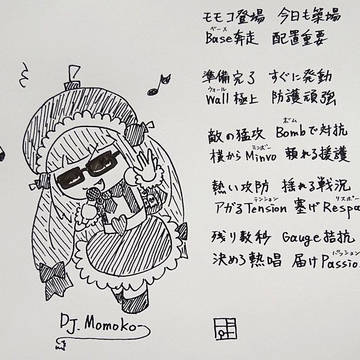 モモコ登場 今日も築場
ベース
Base奔走 配置重要
準備完了 すぐに発動
ウォール
Wall極上 防護頑強
ボム
敵の猛攻 Bombで対抗
ミンボー
横からMinvo 頼れる援護
熱い攻防 揺れる戦況
テンション リスポー
アガるTension 塞げRespa
残り数秒 Gauge拮抗
パッション
決める熱唱 届けPassio
DJ. Momoko